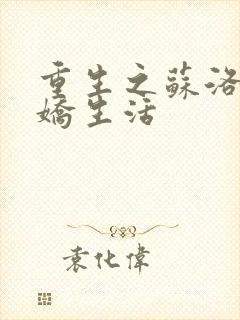 重生之蘇洛
嬌生活
袁化偉